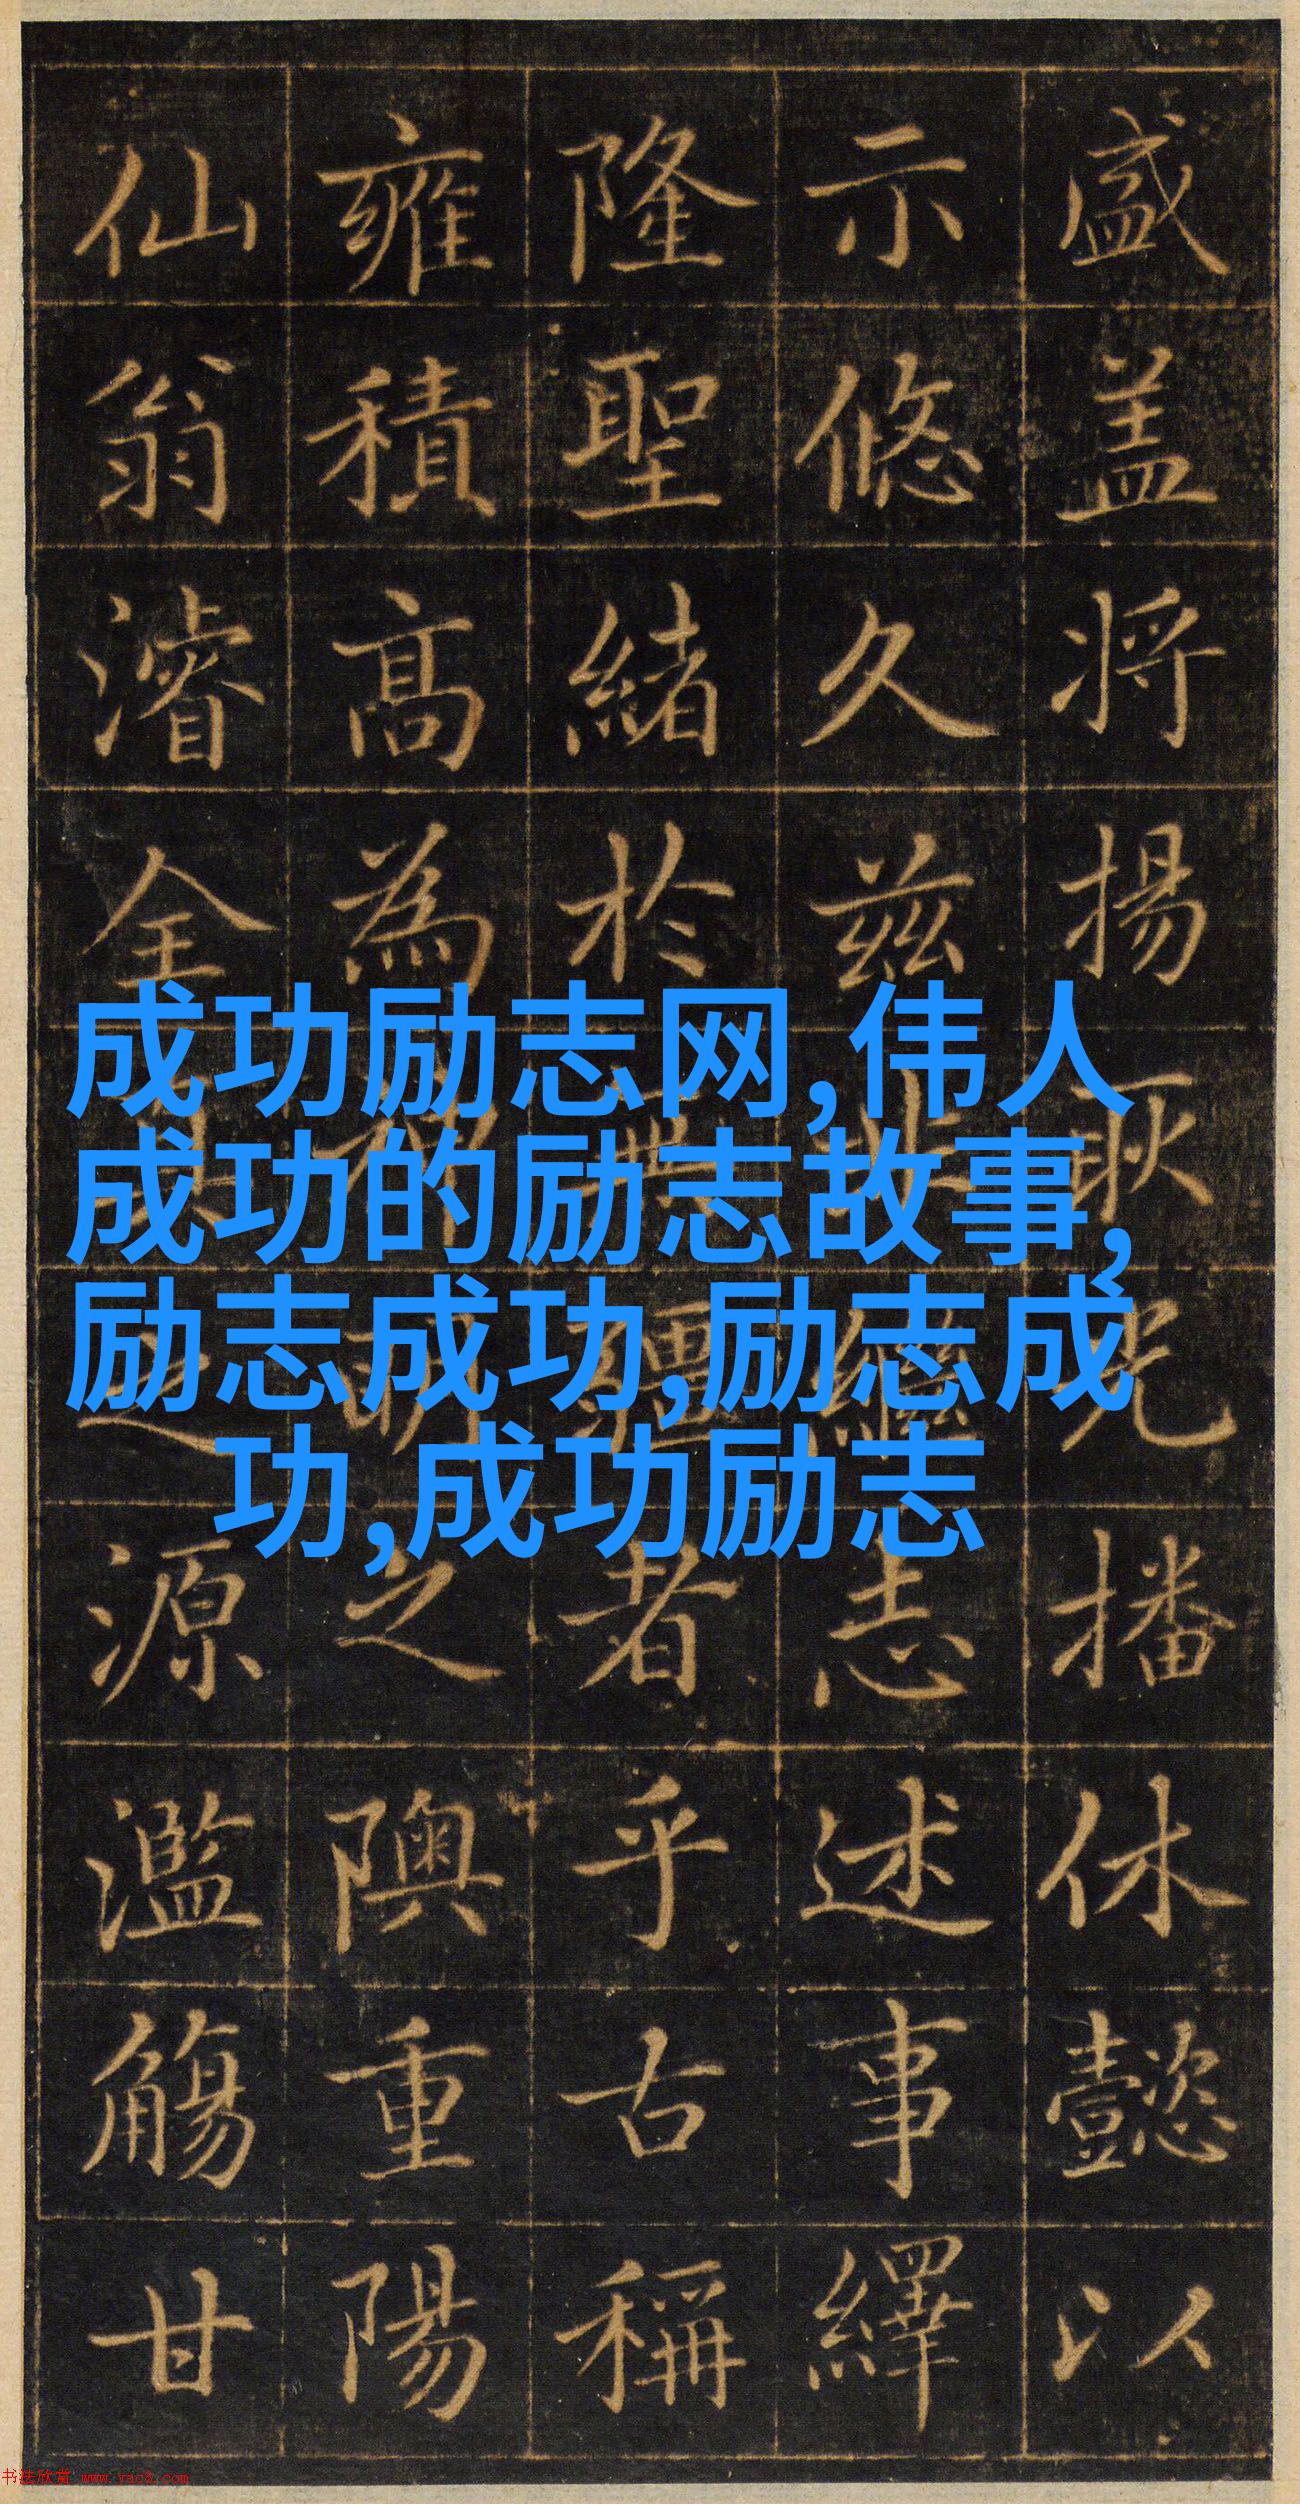 盛盖将揚耿光播休懿以
示悠久兹非繼志述事繹
隆聖緒於無疆者乎古稱
雍積高為神明之隩重陽
仙翁濬全真之源濫觴甘
成功励志网,伟人
成功的励志故事,
励志成功,励志成
功,成功励志
书法欣赏 www.yac8.com